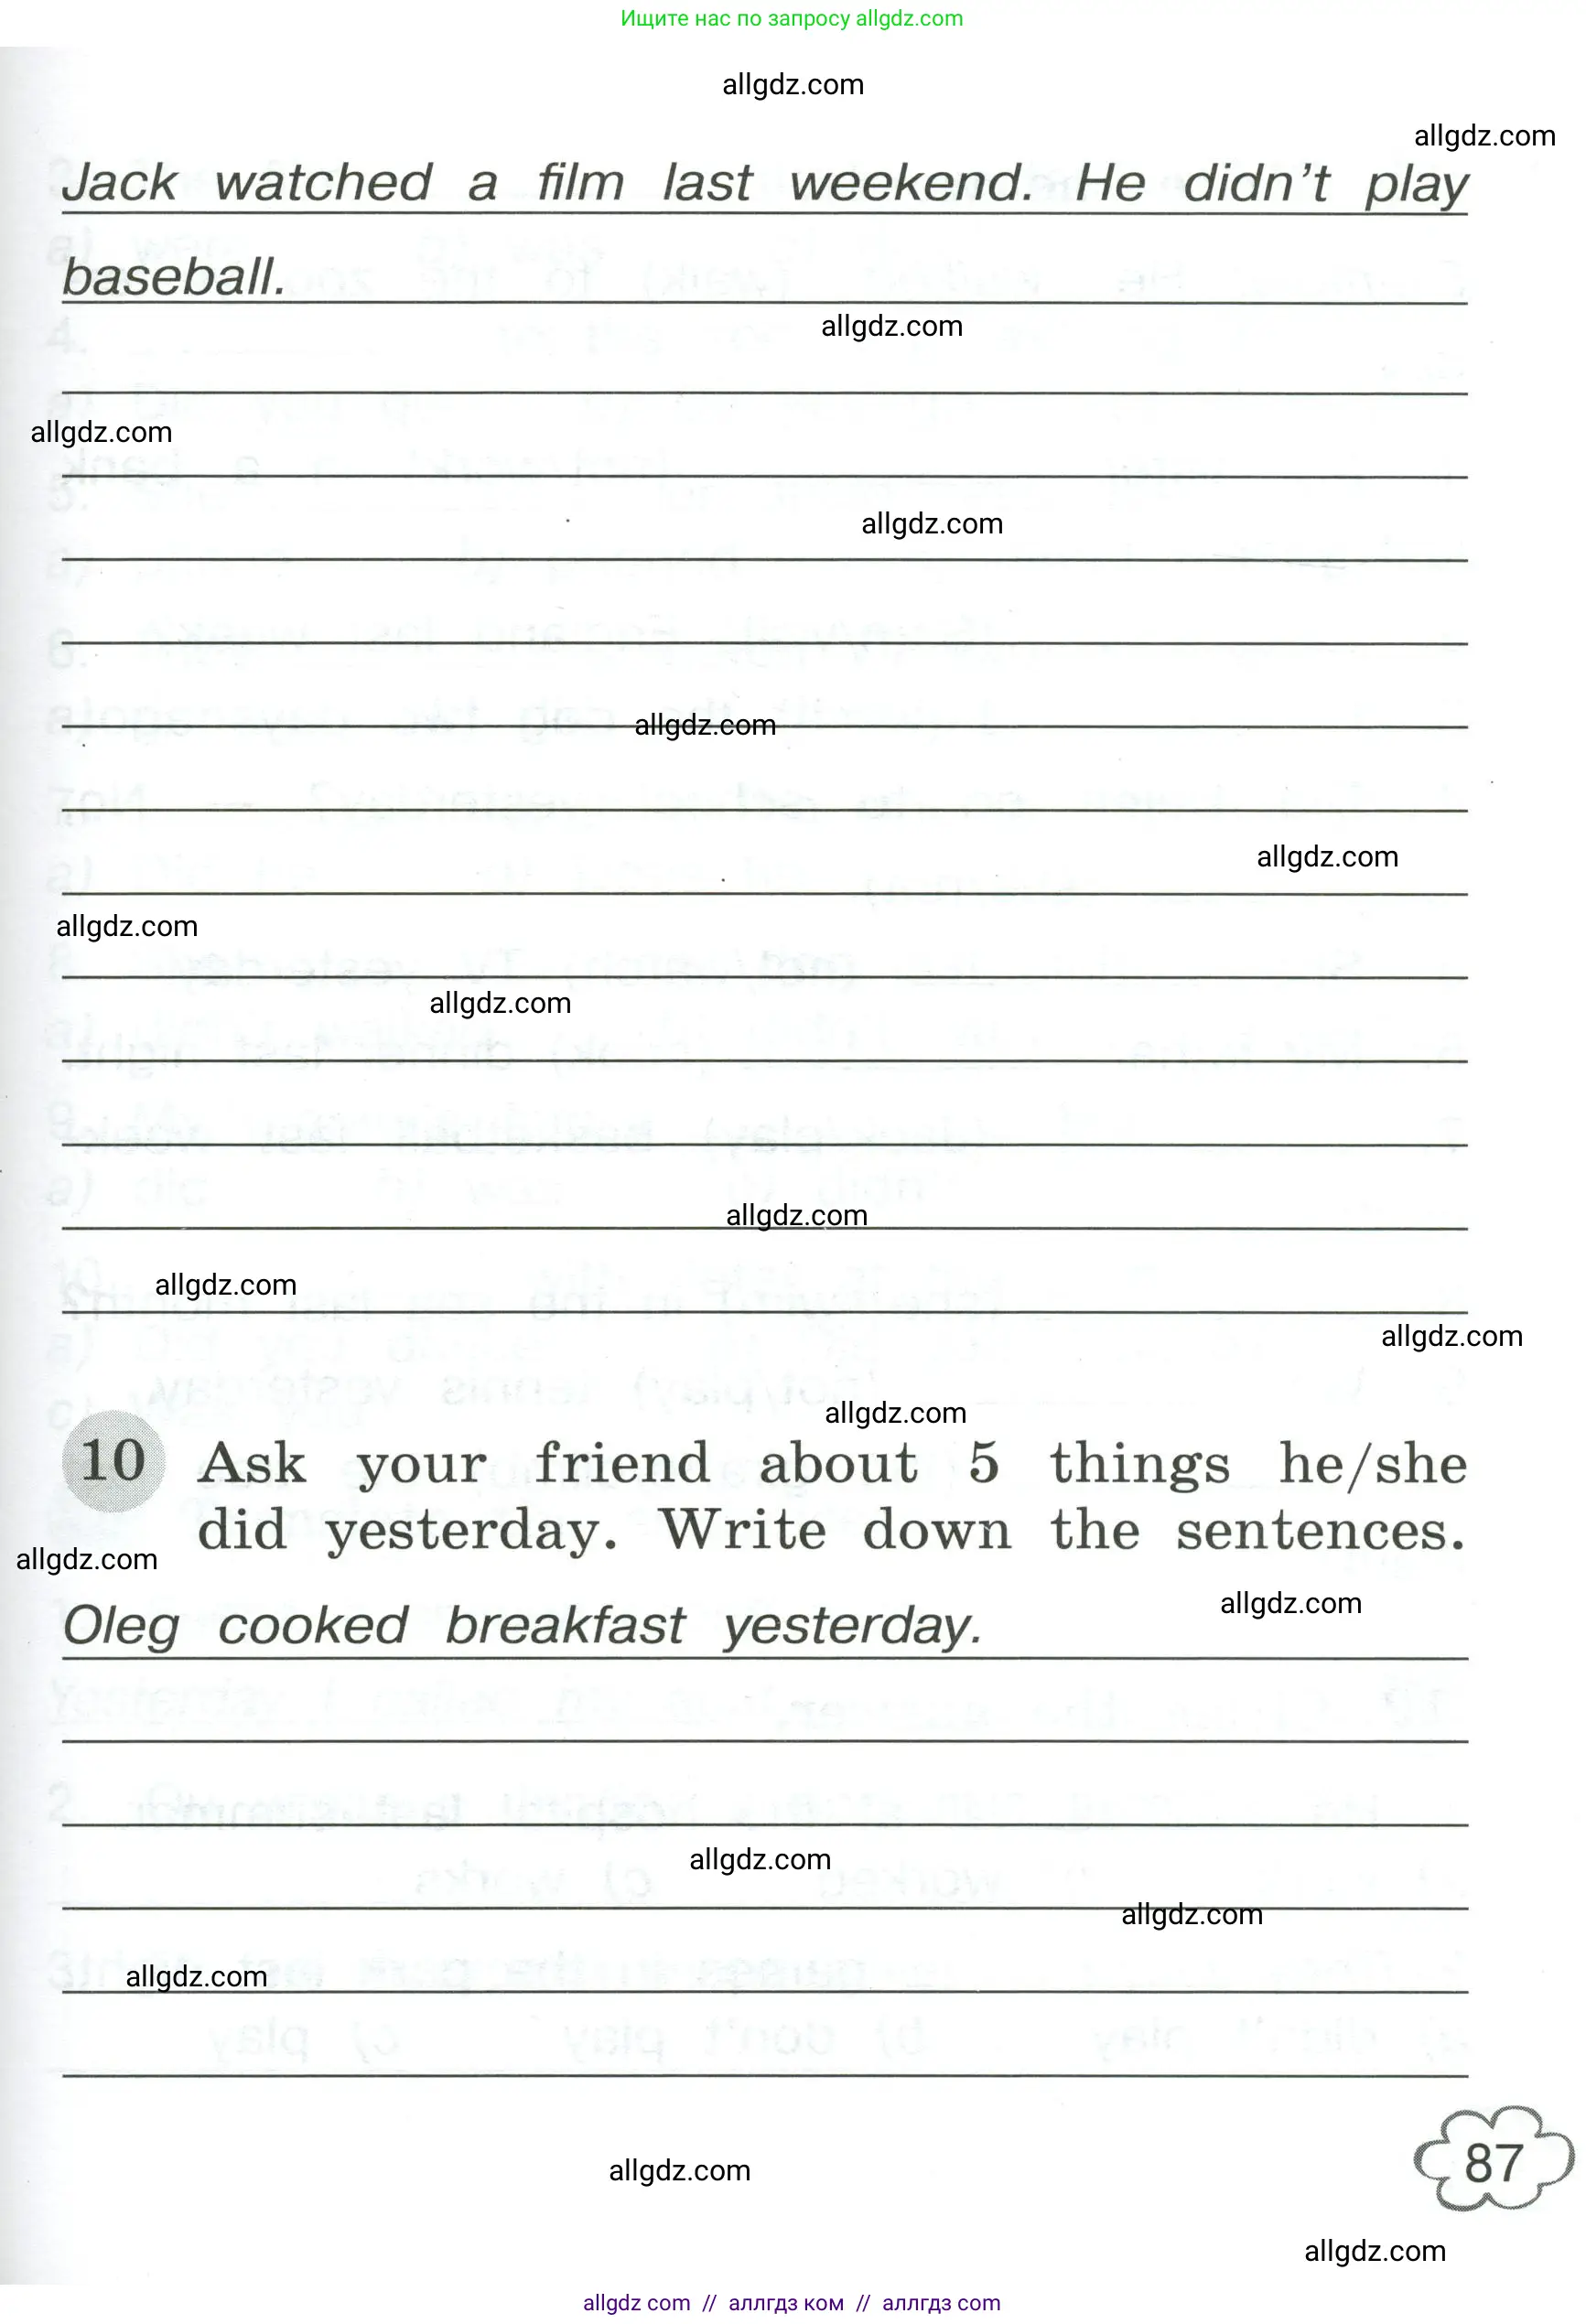 Ищите нас по запросу allgdz.com
allgdz.com
allgdz.com
Jack watched a film last weekend. He didn't play
baseball.
allgdz.com
allgdz.com
allgdz.com
allgdz.com
allgdz.com
allgdz.com
allgdz.com
allgdz.com
allgdz.com
allgdz.com
allgdz.com
10 Ask your friend about 5 things he/she
did yesterday. Write down the sentences.
allgdz.com
allgdz.com
Oleg cooked breakfast yesterday.
allgdz.com
allgdz.com
allgdz.com
allgdz.com
87
allgdz.com
allgdz com // аллгдз ком // аллгдз com